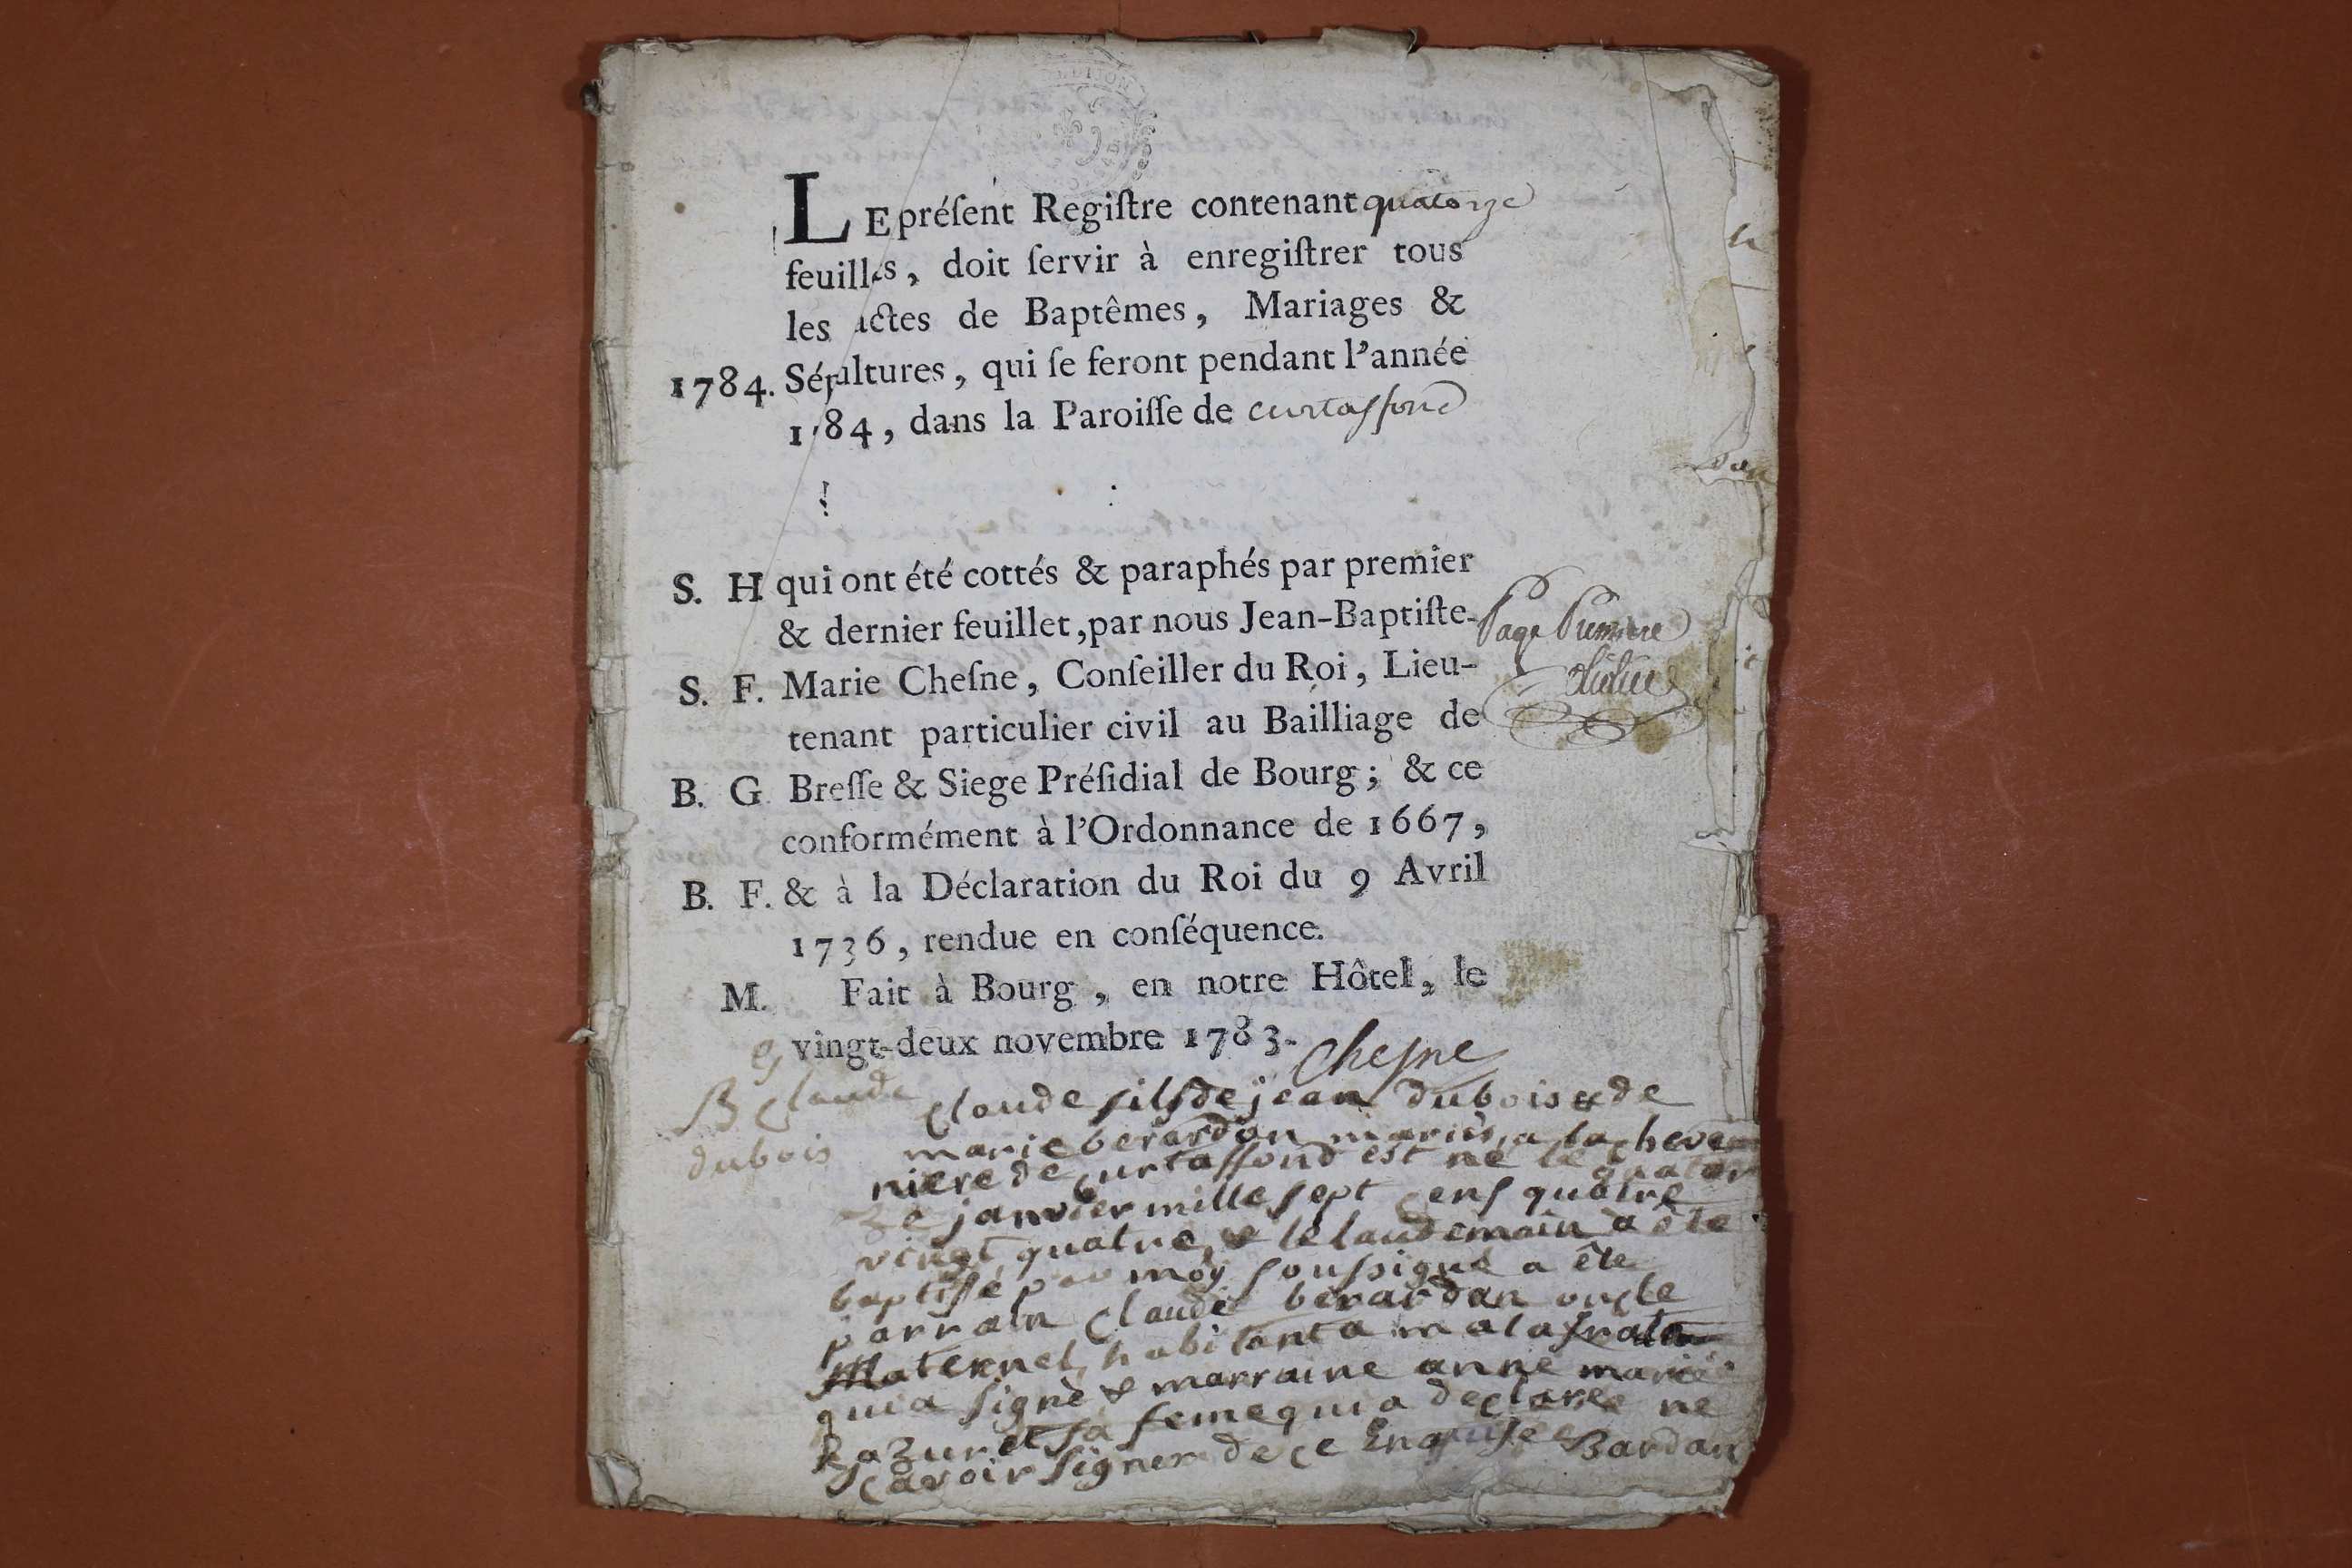 LE préſent Regiſtre contenant quatorze
feuilles, doit ſervir à enregiſtrer tous
les actes de Baptêmes, Mariages &
1784. Sépultures, qui ſe feront pendant l'année
1784, dans la Paroiſſe de curtaffond
S. H qui ont été cottés & paraphés par premier
& dernier feuillet, par nous Jean-Baptiſte-
Page Premiere
S. F. Marie Cheſne, Conſeiller du Roi, Lieu-
tenant particulier civil au Bailliage de
B. G Breſſe & Siege Préſidial de Bourg; & ce
conformément à l'Ordonnance de 1667,
B. F. & à la Déclaration du Roi du 9 Avril
1736, rendue en conſéquence.
M. Fait à Bourg, en notre Hôtel, le
vingt-deux novembre 1783.
Cheſne
B Claude
dubois
Claude fils de jean dubois & de
marie berardan mariés, a la cheve
niere de Curtaffond est né le quator
ze janvier mille sept cens quatre
vingt quatre, & le laudemain a été
baptisé par moy soussigné a éte
parrain Claude berardan oncle
Maternel, habitant a malafrata
qui a signè & marraine anne marie
Razuret sa feme qui a declaree ne
scavoir signer de ce Enquise Bardan